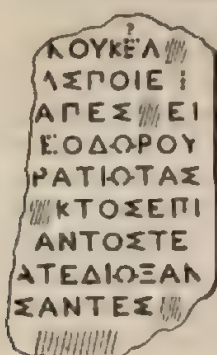 ?
ΛΟΥΚΕΛ
ΛΣΠΟΙΕΙ
ΑΠΕΣ ΕΙ
ΕΟΔΩΡΟΥ
ΡΑΤΙΩΤΑΣ
ΚΤΟΣΕΠΙ
ΑΝΤΟΣΤΕ
ΑΤΕΔΙΩΞΑΝ
ΣΑΝΤΕΣ